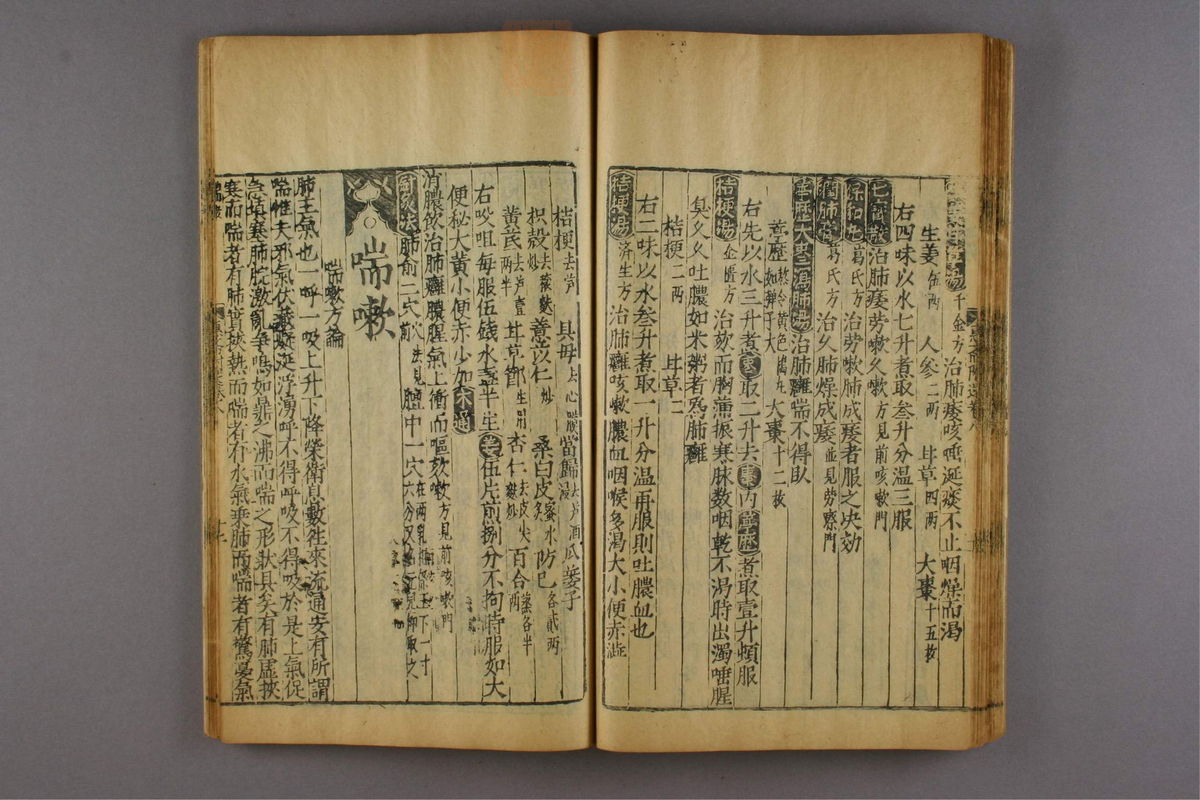 千金方治肺痿咳唾涎痰不止咽燥而渴
生姜伍两 人参二两 甘草四两 大棗十五枚
右四味以水七升煮取叁升分温三服
治肺痿劳嗽久嗽方見前咳嗽門
保和丸葛氏方治劳嗽肺成痿者服之决効
潤肺膏葛氏方治久肺燥成痿並見劳瘵門
葶藶大棗瀉肺湯治肺癰喘不得臥
葶藶熬令黄色擣丸如彈子大 大棗十二枚
右先以水三升煮棗取二升去棗内葶藶煮取壹升頓服
桔梗湯金匱方治欬而胸滿振寒脉数咽乾不渴時出濁唾腥
臭久久吐膿如米粥者爲肺癰
桔梗二两 甘草二
右二味以水叁升煮取一升分温再服則吐膿血也
桔梗湯済生方治肺癰咳嗽膿血咽喉多渴大小便赤澁
桔梗去芦 貝母去心膜 當歸去芦酒浸 瓜蔞子
枳殻去穰麩炒 薏苡仁炒 桑白皮蜜水炙 防己各貳两
黄芪去芦壹两半 甘草節生用 杏仁去皮尖麩炒 百合蒸各半两
右㕮咀每服伍錢水壹盞半生姜伍片煎捌分不拘時服如大
便秘大黄小便赤少加木通
消膿飲治肺癰膿腥氣上衝而嘔欬嗽方見前咳嗽門
針灸法肺俞二穴穴法見前 膻中一穴在两乳間
喘嗽
喘嗽方論
肺主氣也一呼一吸上升下降榮衛息數往來流通安有所謂
喘惟夫邪氣伏藏痰涎浮湧呼不得呼吸不得吸於是上氣促
急填塞肺脘激亂争鳴如鼎之沸而喘之形狀具矣有肺虚挾
寒而喘者有肺實挾熱而喘者有水氣乗肺而喘者有驚憂氣